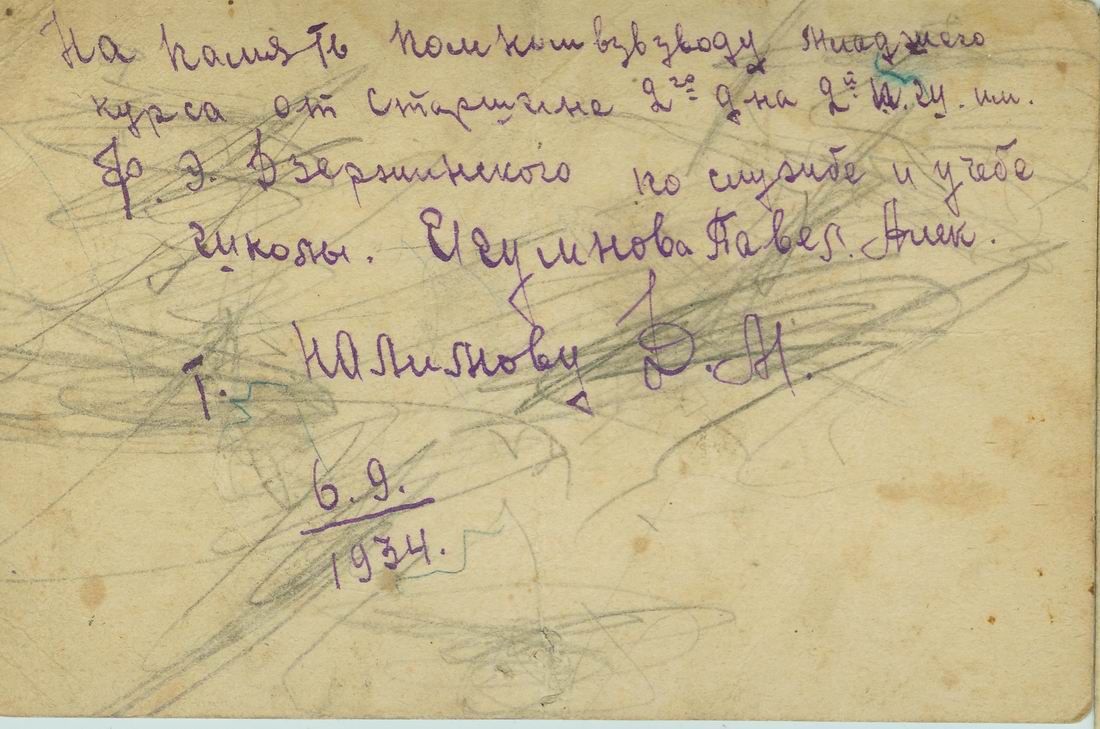 На память помкомвзвзводу младшего
курса от Старшине 2го д-на 2й ш.
Ф. Э. Дзержинского по службе и учебе
школы. Игумнова Павел. Алек.
Т. Налимову Д. М.
6.9.
1934.